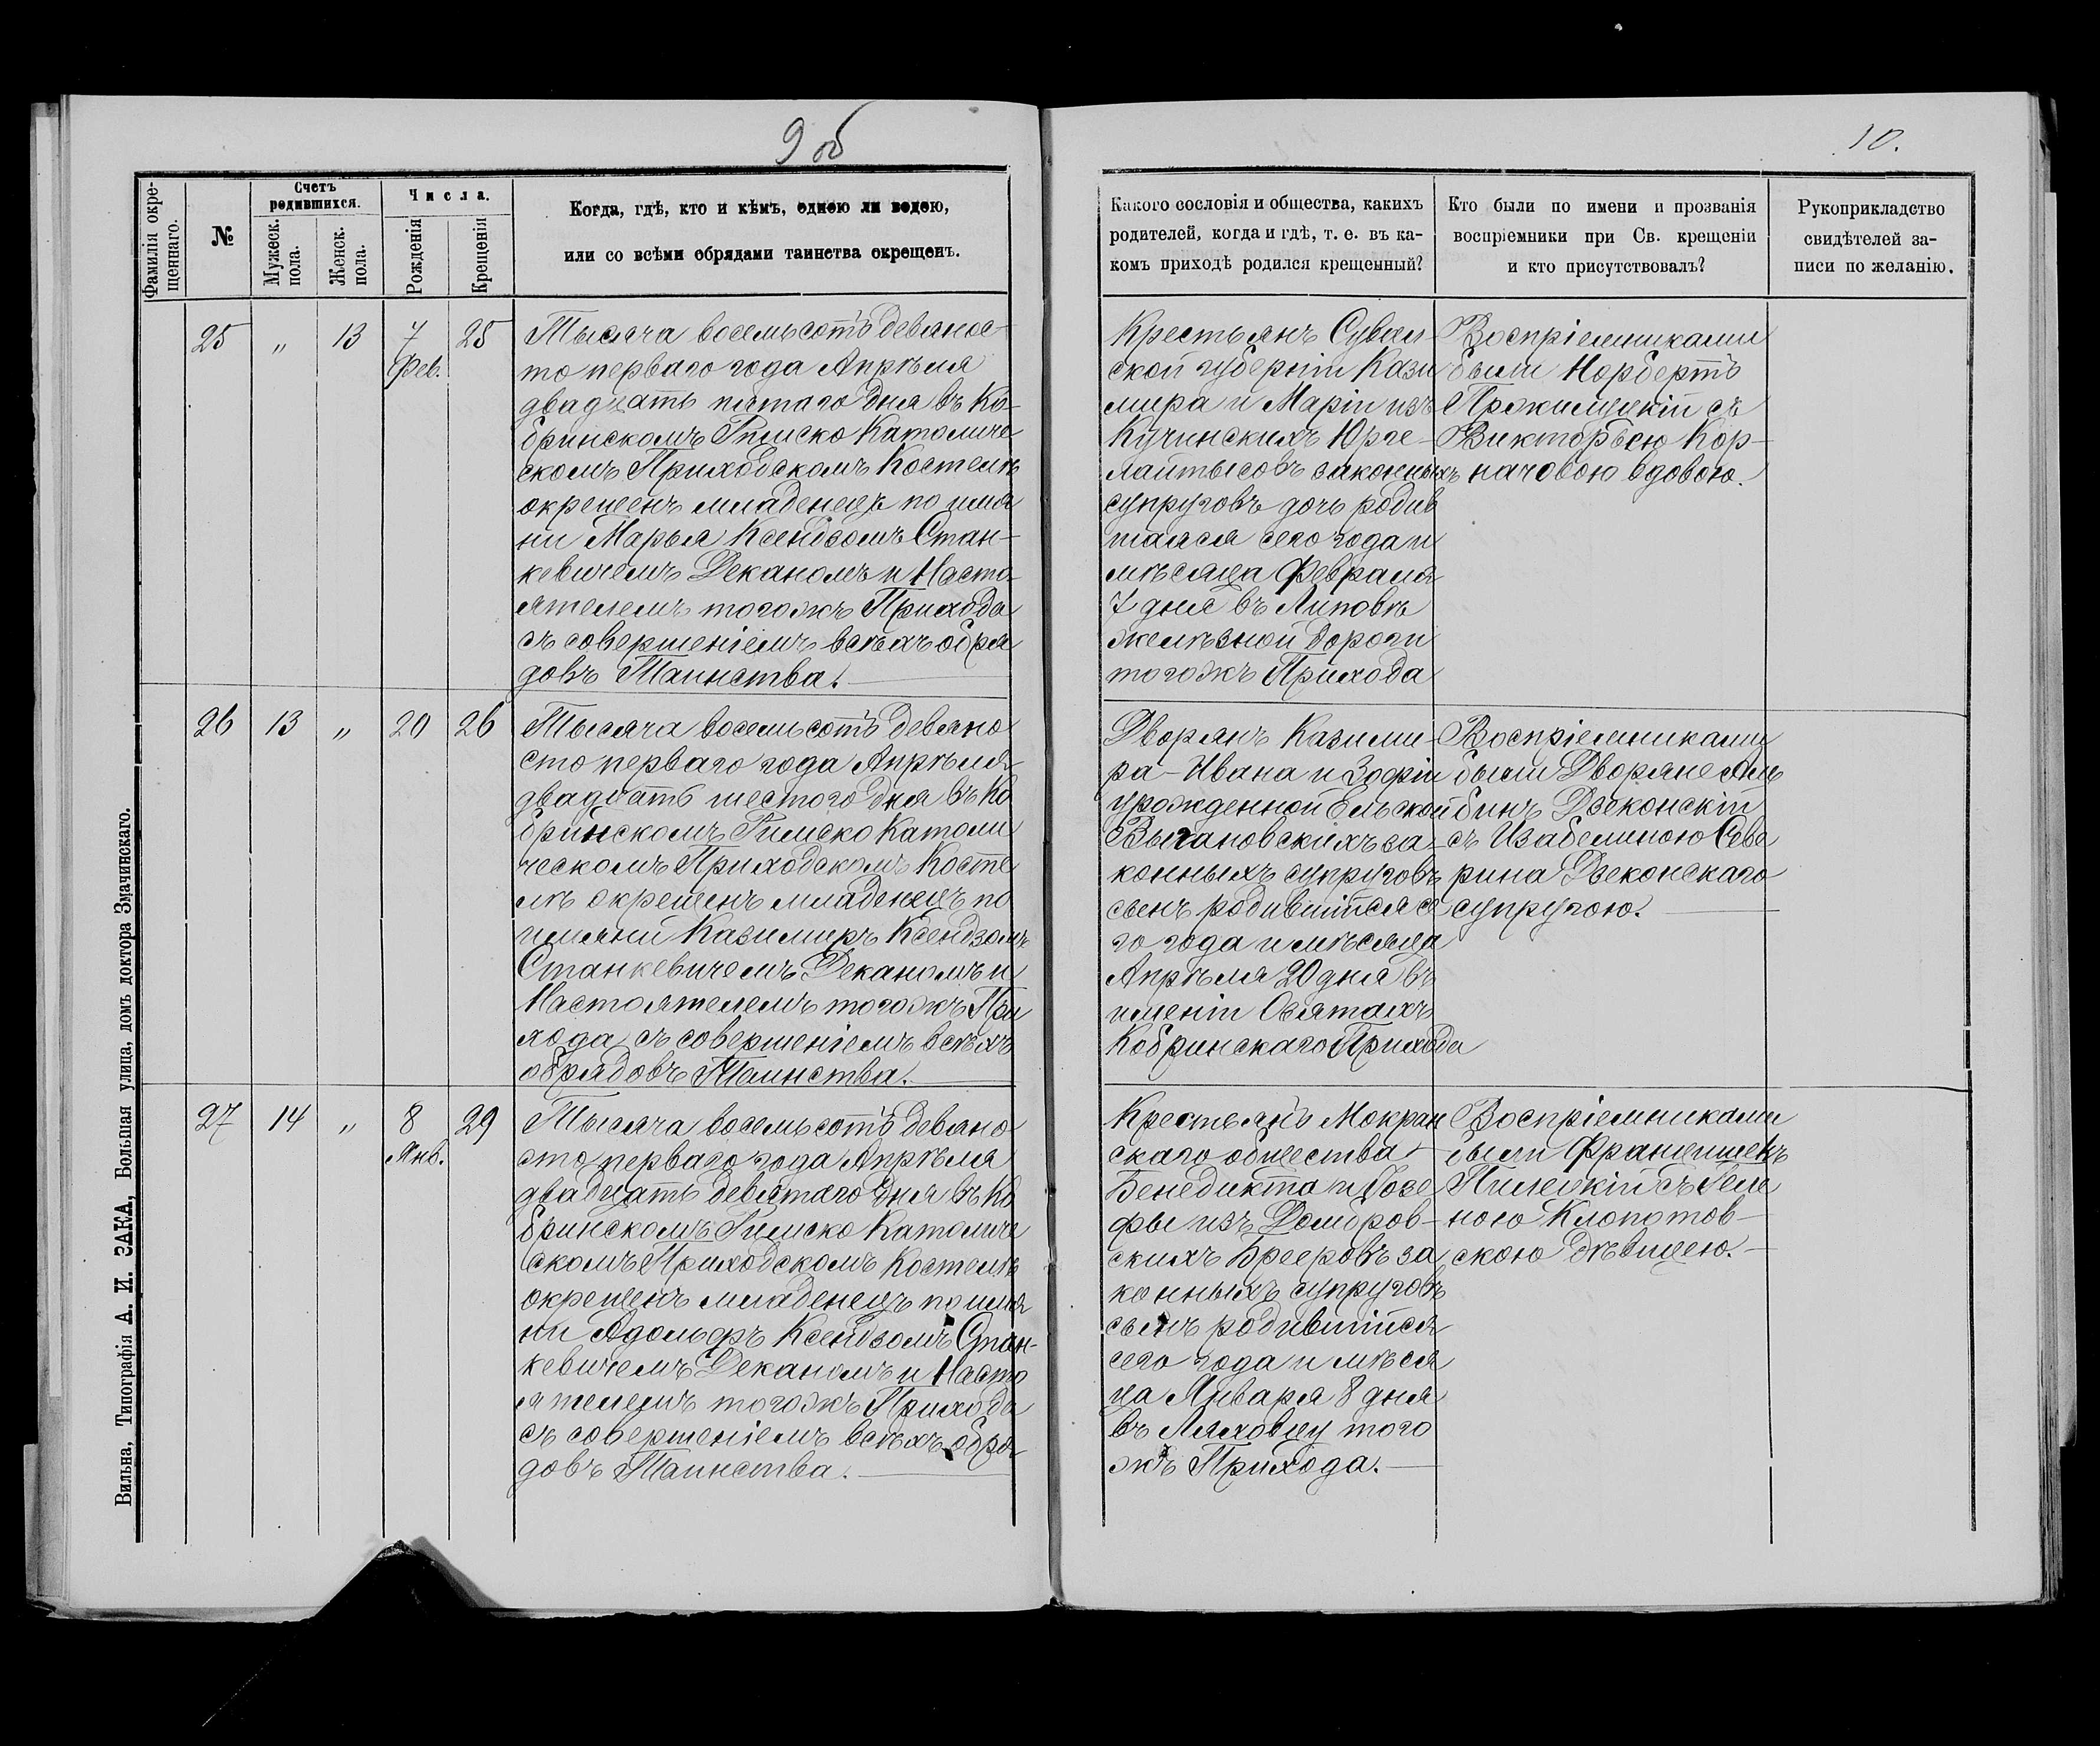 9 об
10.
Фамилія окре-
щеннаго.
№
Счетъ
родившихся.
Мужеск.
пола.
Женск.
пола.
Числа.
Рожденія
Крещенія
Когда, гдѣ, кто и кѣмъ, одною ли водою,
или со всѣми обрядами таинства окрещенъ.
Какого сословія и общества, какихъ
родителей, когда и гдѣ, т. е. въ ка-
комъ приходѣ родился крещенный?
Кто были по имени и прозванія
воспріемники при Св. крещеніи
и кто присутствовалъ?
Рукоприкладство
свидѣтелей за-
писи по желанію.
25 „ 13 7 25
Фев.
Тысяча восемьсотъ девянос-
то перваго года Апрѣля
двадцать пятаго дня въ Ко-
бринскомъ Римско Католиче
скомъ Приходскомъ Костелѣ
окрещенъ младенецъ по имя
ни Марья Ксендзомъ Стан-
кевичемъ Деканомъ и Насто-
ятелемъ того жъ Прихода
съ совершеніемъ всѣхъ обря
довъ Таинства.
Крестьянъ Сувал-
ской губерніи Кази
мира и Маріи изъ
Кучинскихъ Юрге-
лайтысовъ законныхъ
супруговъ дочь родив
шаяся сего года и
мѣсяца Февраля
7 дня въ Липовѣ
желѣзной дороги
того жъ Прихода
Воспріемниками
были Норбертъ
съ
Викторьею Кор-
начовою вдовою.
26 13 „ 20 26
Тысяча восемьсотъ девяно
сто перваго года Апрѣля
двадцать шестого дня въ Ко
бринскомъ Римско Католи
ческомъ Приходскомъ Косте
лѣ окрещенъ младенецъ по
имяни Казимиръ Ксендзомъ
Станкевичемъ Деканомъ и
Настоятелемъ того жъ При
хода съ совершеніемъ всѣхъ
обрядовъ Таинства.
Дворянъ Казими-
ра-Ивана и Зофіи
урожденной Ельской
Выгановскихъ за-
конныхъ супруговъ
сынъ родившійся се
го года и мѣсяца
Апрѣля 20 дня въ
имѣніи Осятахъ
Кобринскаго Прихода
Воспріемниками
были Дворяне Аль
бинъ Дзеконскій
съ Изабеллиною Севе
рина Дзеконскаго
супругою.
27 14 „ 8 29
Янв.
Тысяча восемьсотъ девяно
сто перваго года Апрѣля
двадцать девятаго дня въ Ко
бринскомъ Римско Католиче
скомъ Приходскомъ Костелѣ
окрещенъ младенецъ по имя
ни Адольфъ Ксендзомъ Стан-
кевичемъ Деканомъ и Насто
ятелемъ того жъ Прихода
съ совершеніемъ всѣхъ обря
довъ Таинства.
Крестьянъ Мокран
скаго общества
Бенедикта и Іозе
фы изъ Домбров-
скихъ Брееровъ за
конныхъ супруговъ
сынъ родившійся
сего года и мѣся
ца Января 8 дня
въ Ляховцу того
жъ Прихода.
Воспріемниками
были Францишекъ
Пилецкій съ Геле
ною Клопотов-
скою дѣвицею.
Вильна, Типографія А. И. ЗАКА, Большая улица, домъ доктора Змачинскаго.